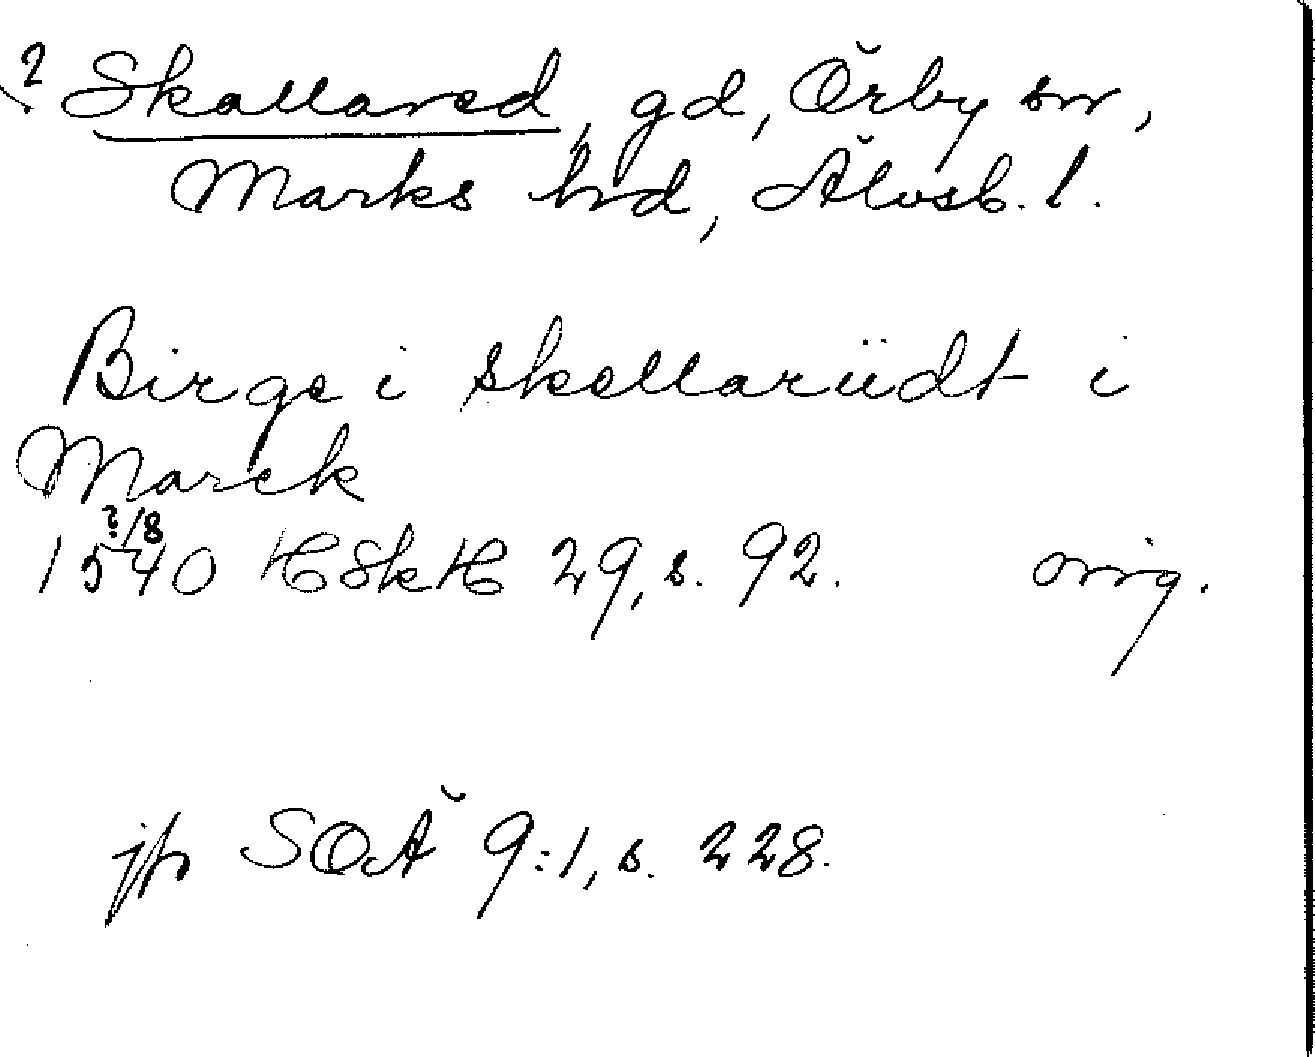 ? Skallared, gd, Örby sn,
Marks hd, Älvsb. l.
Birge i Skallariidt i
Marck
?/8
1540 HSkH 29, s. 92. orig.
jfr SOÄ 9:1, s. 228.